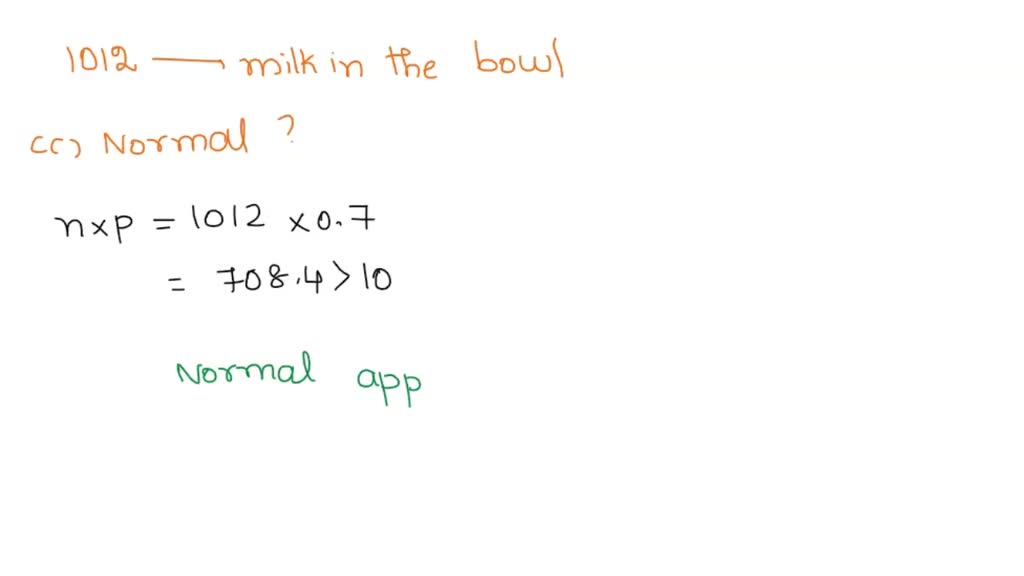 1012 — milk in the bowl
(c) Normal ?
n×p = 1012 × 0.7
= 708.4 > 10
Normal app